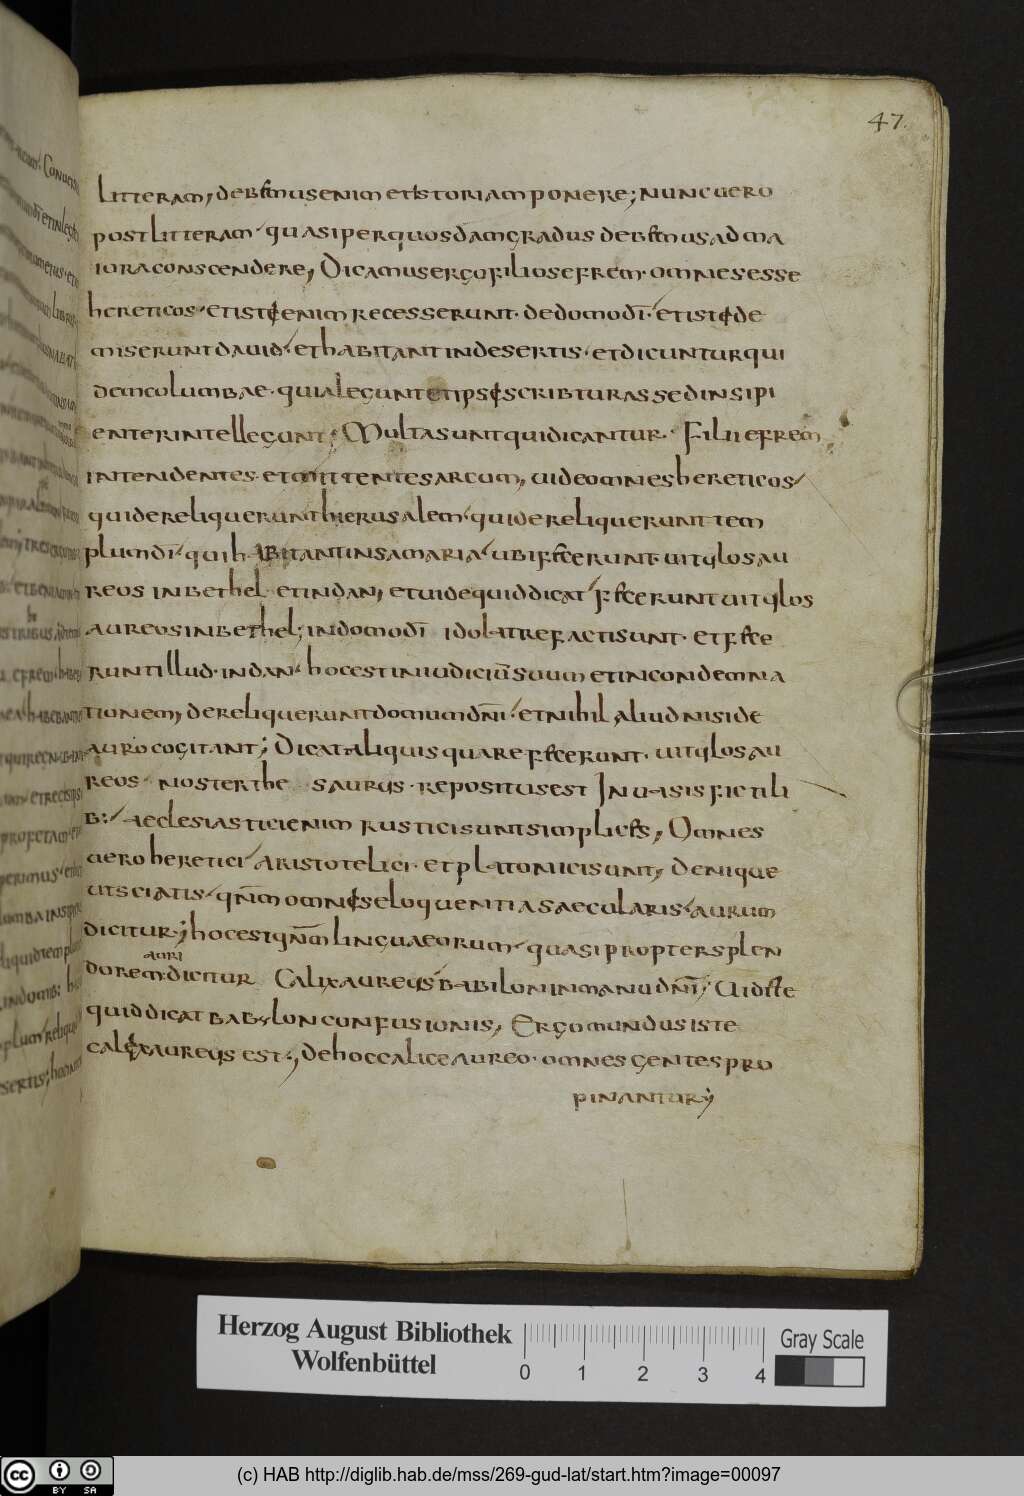 47.
litteram, debemus enim et istoriam ponere; nunc uero
post litteram quasi per quosdam gradus debemus ad ma
iora conscendere, Dicamus ergo filios efrem· omnes esse
hereticos· et isti enim recesserunt· de domo dī· et isti de
miserunt dauid· et habitant in desertis· et dicuntur qui
dem columbae· quia legunt et ipsę scribturas sed insipi
enter intellegunt; Multa sunt qui dicantur· Filii efrem
intendentes et mittentes arcum, uide omnes hereticos
qui dereliquerunt hierusalem· qui dereliquerunt tem
plum dī· qui habitant in samaria· ubi fecerunt uitylos au
reos in bethel et in dan, et uide quid dicat· fecerunt uitylos
aureos in bethel; in domo dī idola trefacti sunt· et fece
runt illud· in dan· hoc est in iudiciū suum et in condemna
tionem, dereliquerunt domum dn̄i· et nihil aliud nisi de
auro cogitant; Dicat aliquis quare fecerunt· uitylos au
reos· noster the saurus· repositus est In uasis fictili
b:· aeclesiastici enim rustici sunt simplices, Omnes
uero heretici aristotelici· et platonici sunt, denique
ut sciatis· qn̄m omnis eloquentia saecularis· aurum
dicitur; hoc est qn̄m lingua eorum· quasi propter splen
auri
dorem· dicitur Calix aureus babilon in manu dn̄i, Uidete
quid dicat babylon confusionis, Ergo mundus iste
calix aureus est·, de hoc calice aureo· omnes gentes pro
pinantur;
Herzog August Bibliothek
Wolfenbüttel
0 1 2 3 4
Gray Scale
cc BY SA
(c) HAB http://diglib.hab.de/mss/269-gud-lat/start.htm?image=00097